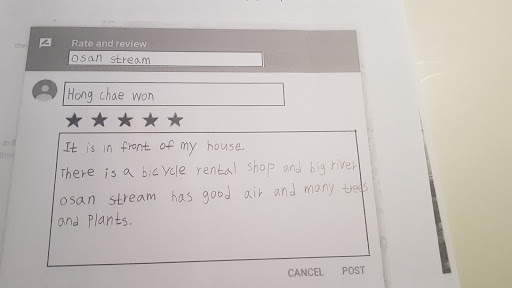 Rate and review
osan stream
Hong chae won
It is in front of my house.
There is a bicycle rental shop and big river
osan stream has good air and many trees
and plants.
CANCEL POST